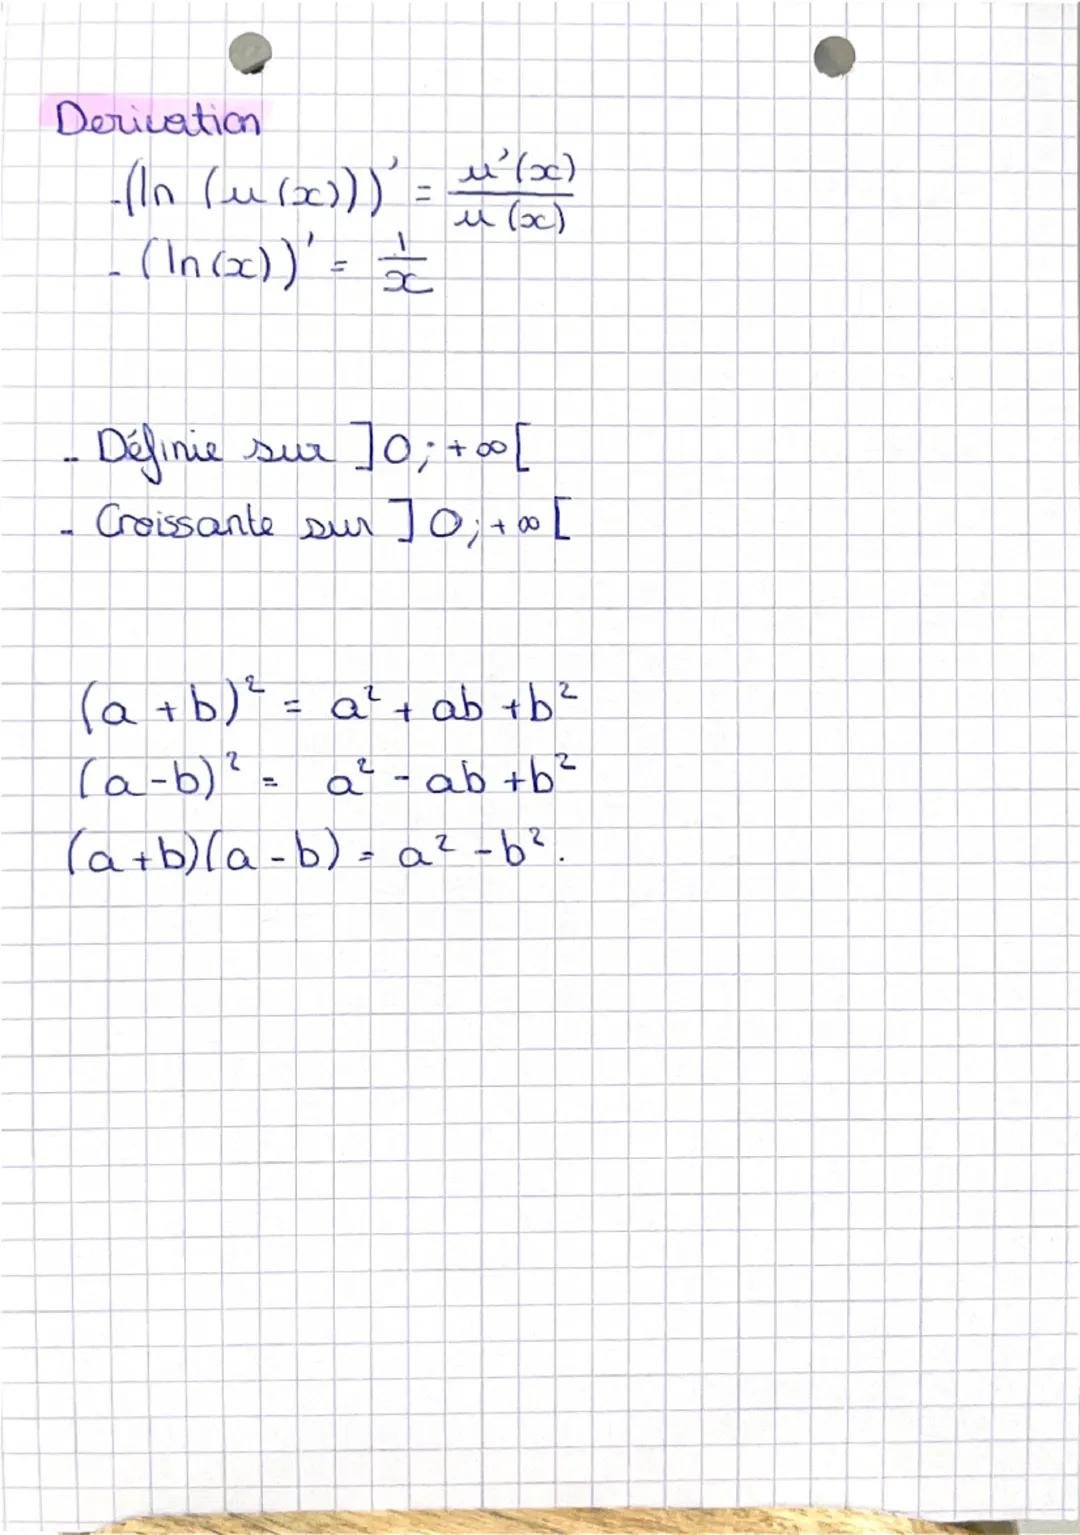 Derivation
-(ln (u(x)))' = u'(x)/u(x)
- (ln(x))' = 1/x
- Définie sur ]0; +∞[
- Croissante sur ]0; +∞[
(a+b)² = a² + ab + b²
(a-b)² = a² - ab + b²
(a+b)(a-b) = a² - b².